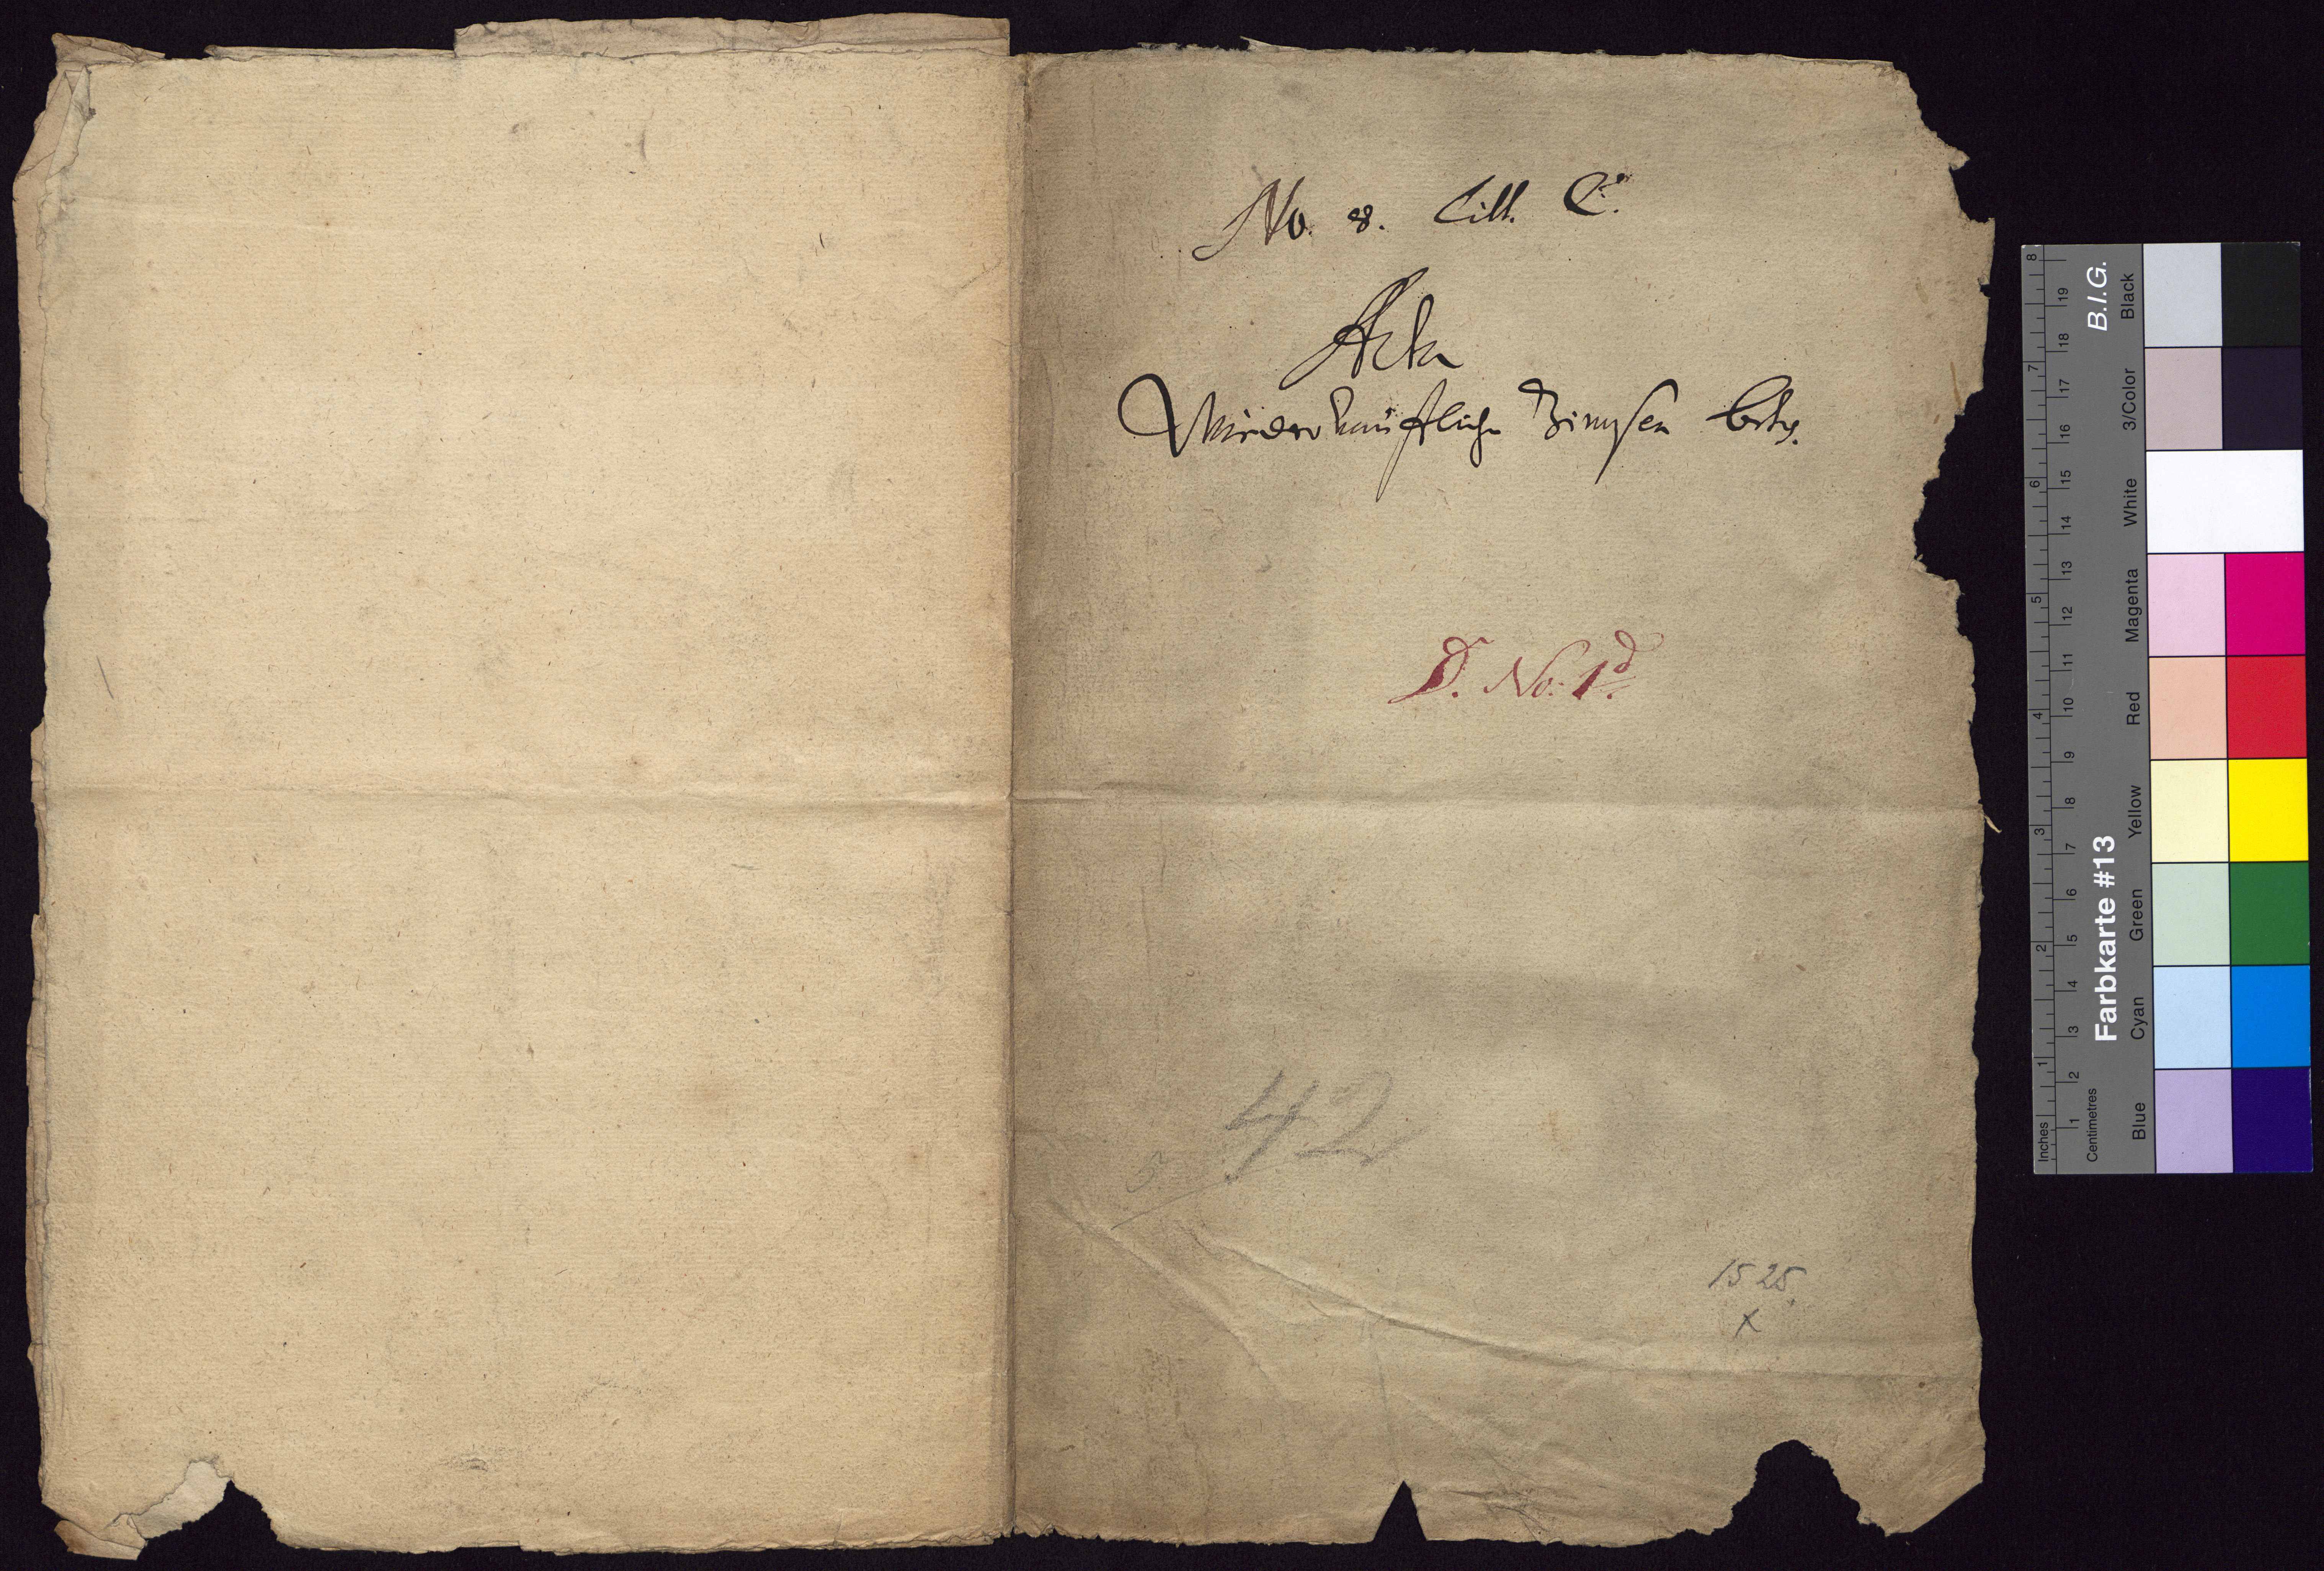 No. 8. Litt. C.
Acta
Wiederkäuffliche Zinnsen betr.
D. No. 1d.
42
5
1525.
x
B.I.G.
Farbkarte #13
Black
3/Color
White
Magenta
Red
Yellow
Green
Cyan
Blue
Centimetres
Inches
1 2 3 4 5 6 7 8 9 10 11 12 13 14 15 16 17 18 19
1 2 3 4 5 6 7 8